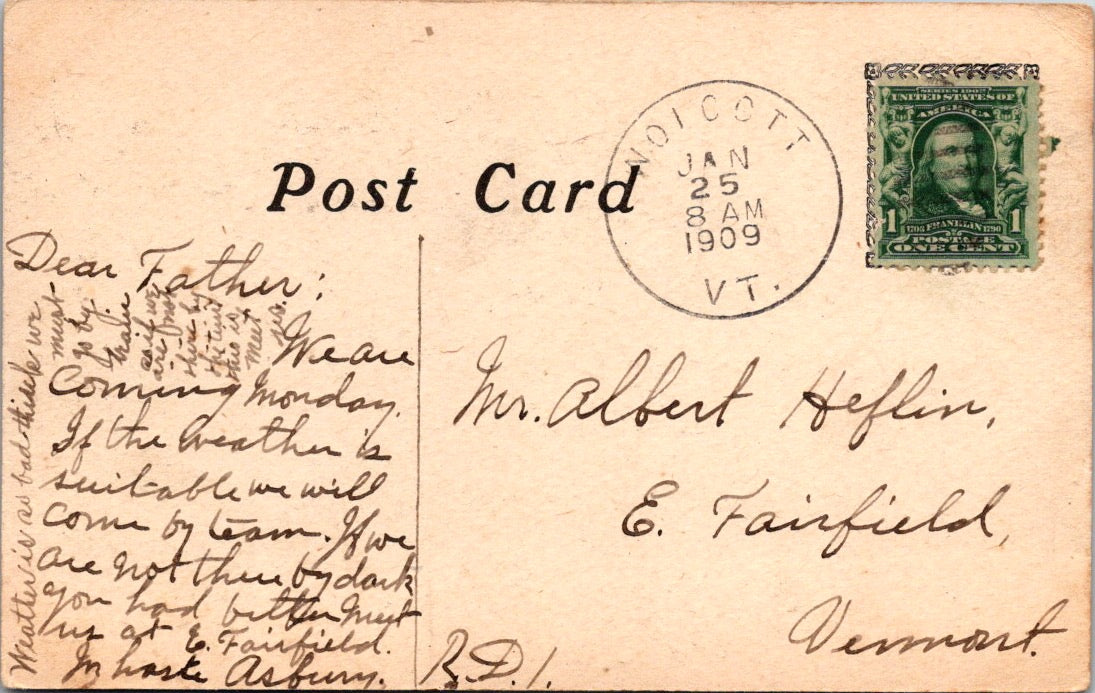 Post Card
WOLCOTT
JAN
25
8 AM
1909
VT.
SERIES 1902
UNITED STATES OF
AMERICA
1706 FRANKLIN 1790
1 1
POSTAGE
ONE CENT
Dear Father:
We are
coming Monday.
If the weather is
suitable we will
come by team. If we
are not there by dark
you had better meet
us at E. Fairfield.
In haste Asbury.
Weather is so bad think we
must
go by
train
so if we
are not
there by
the time
this is
meet
us.
Mr. Albert Heflin,
E. Fairfield,
Vermont.
R.D.1.